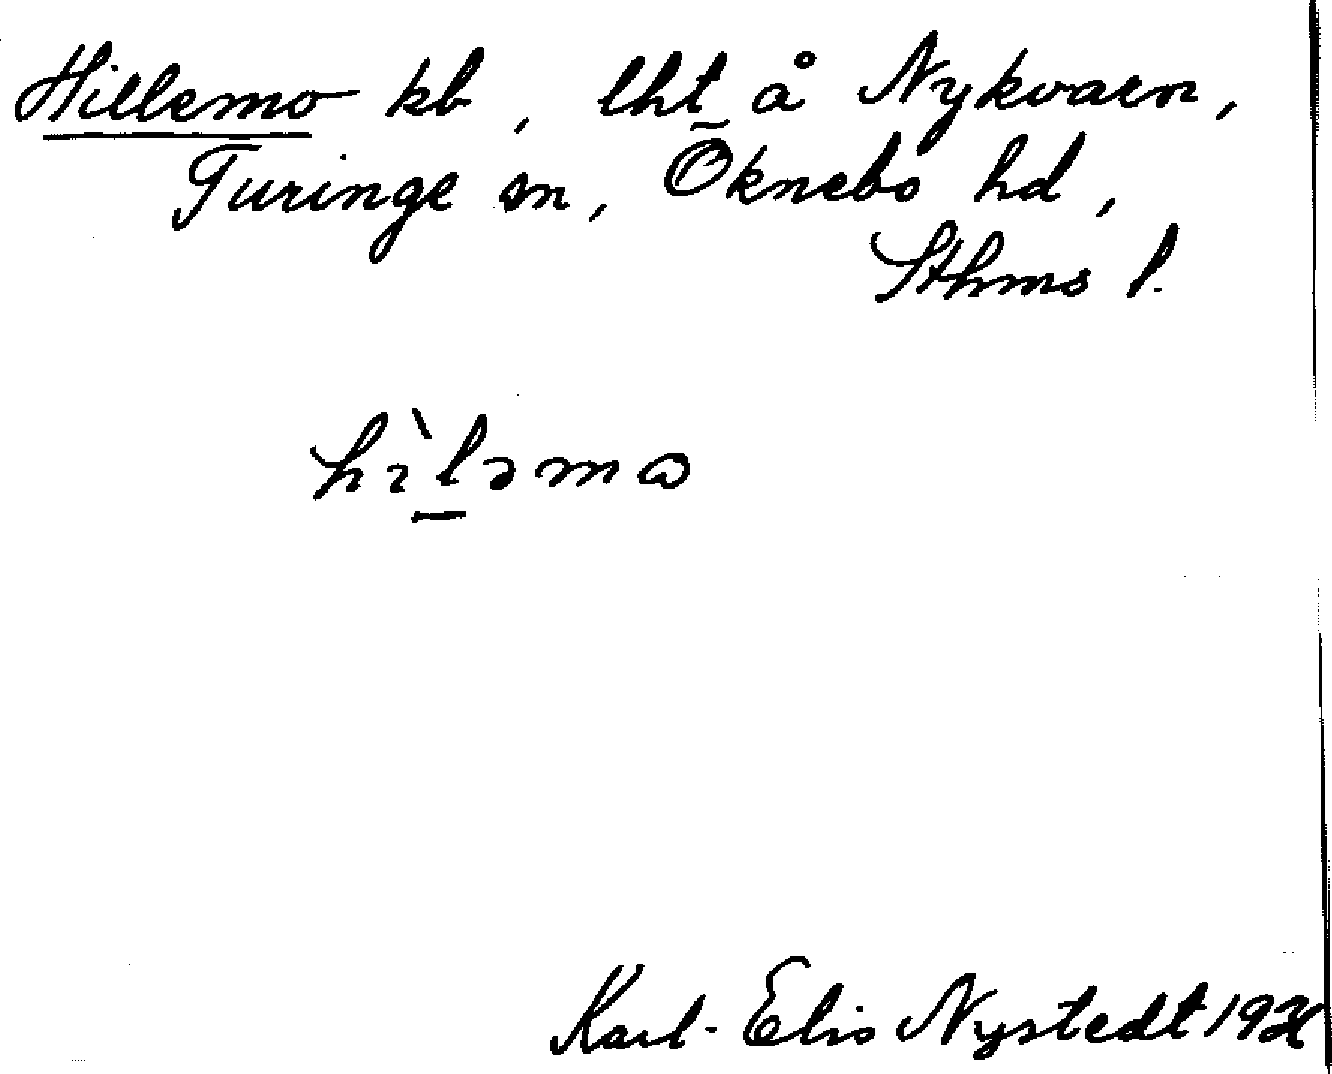 Hillemo kb, lht å Nykvarn,
Turinge sn, Öknebo hd,
Sthms l.
hìləmω
Karl-Elis Nystedt